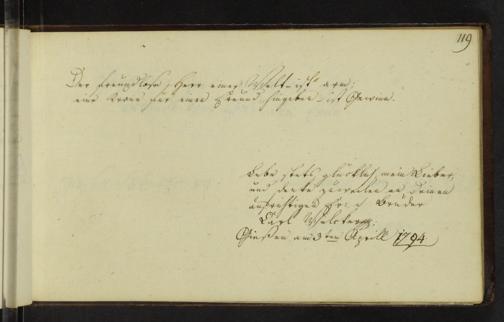 119
Der Freundlose, Herr einer Welt ist arm;
eine Krone für einen Freund hingeben ist Gewinn.
Lebe stets glücklich, mein Lieber,
und denke zuweilen an Deinen
aufrichtigen Bruder
Carl
Giessen am 3ten Aprill 1794